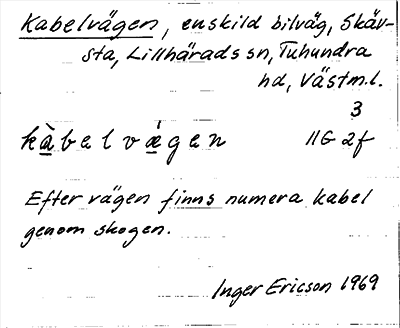 Kabelvägen, enskild bilväg, Skäv-
sta, Lillhärads sn, Tuhundra
hd, Västm.l.
3
kàbelvä́gen 11G 2f
Efter vägen finns numera kabel
genom skogen.
Inger Ericson 1969